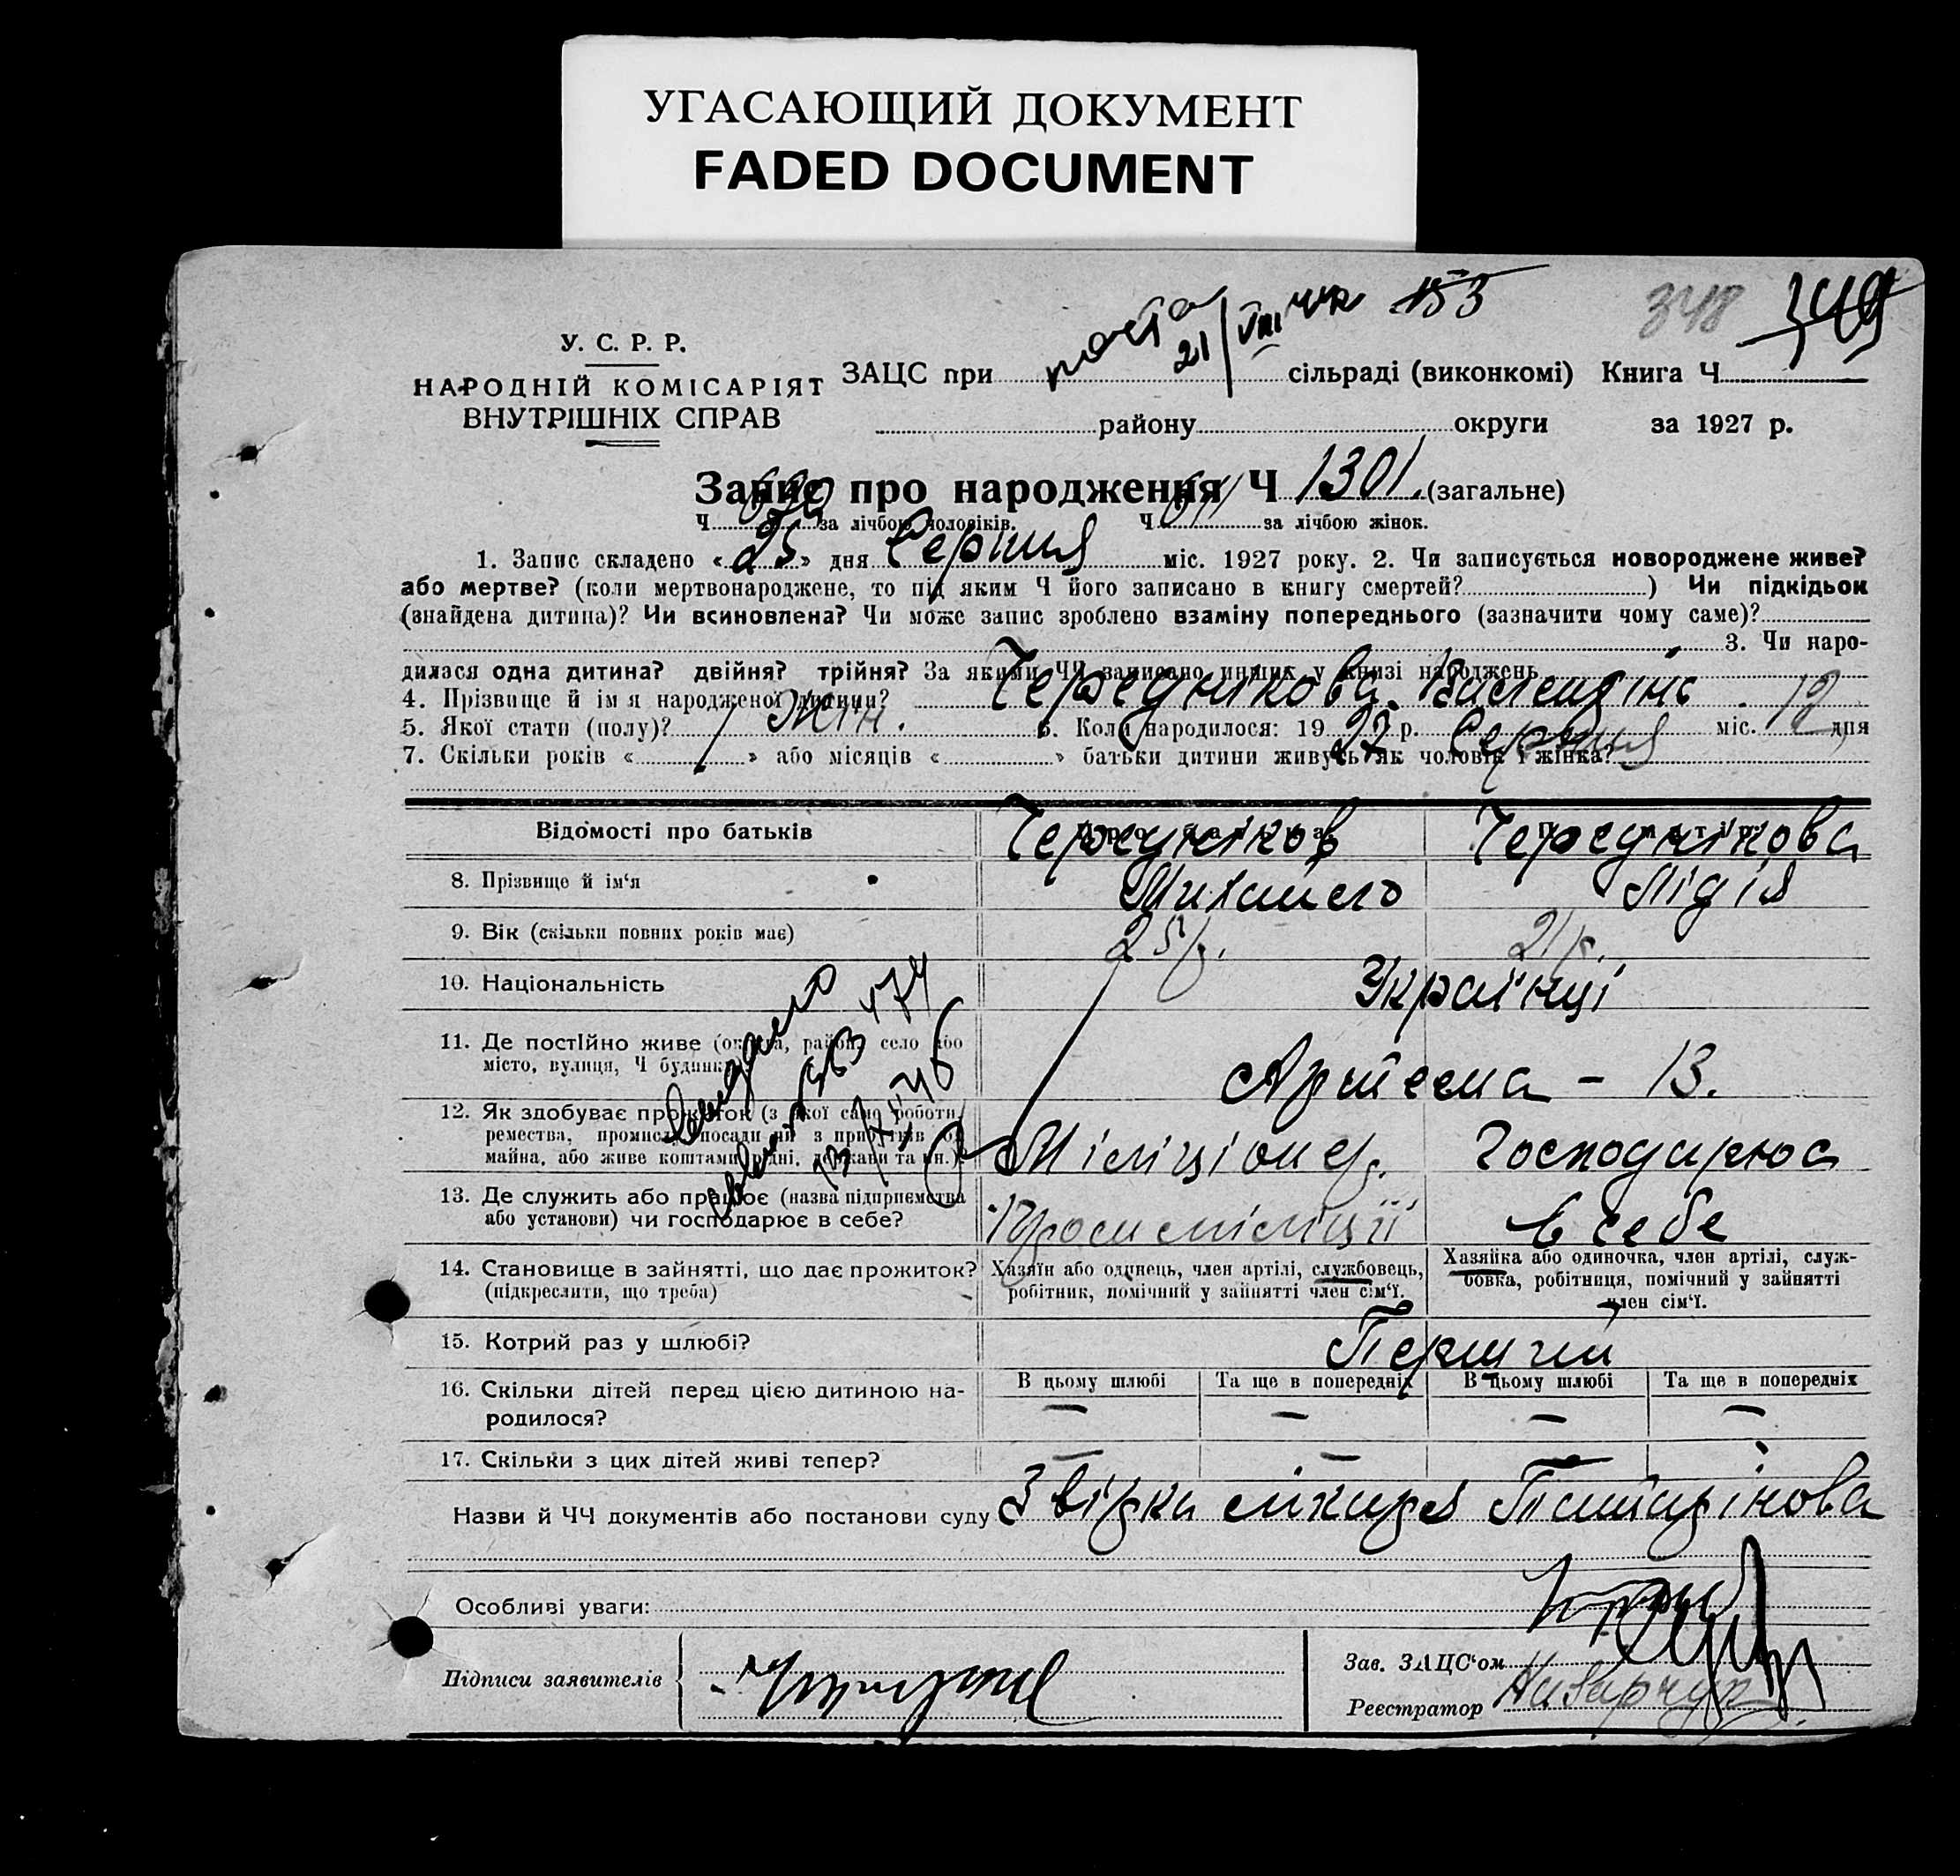 УГАСАЮЩИЙ ДОКУМЕНТ
FADED DOCUMENT
153 348 349
У. С. Р. Р.
НАРОДНІЙ КОМІСАРІЯТ
ВНУТРІШНІХ СПРАВ
ЗАЦС при 21/VIII сільраді (виконкомі) Книга Ч
району округи за 1927 р.
Запис про народження Ч 1301. (загальне)
Ч за лічбою чоловіків. Ч за лічбою жінок.
1. Запис складено «25» дня Серпня міс. 1927 року. 2. Чи записується новороджене живе?
або мертве? (коли мертвонароджене, то під яким Ч його записано в книгу смертей?) Чи підкідьок
(знайдена дитина)? Чи всиновлена? Чи може запис зроблено взаміну попереднього (зазначити чому саме)?
3. Чи наро-
дилася одна дитина? двійня? трійня? За якими ЧЧ записано инших у книзі народжень
4. Прізвище й ім'я народженої дитини? Череднікова Валентіна
5. Якої стати (полу)? Жін. 6. Коли народилося: 1927 р. Серпня міс. 12 дня
7. Скільки років «» або місяців «» батьки дитини живуть як чоловік і жінка?
Відомості про батьків
Чередніков Череднікова
8. Прізвище й ім'я Михайло Лідія
9. Вік (скільки повних років має) 25 р. 21 р.
10. Національність Українці
11. Де постійно живе (округа, район, село або
місто, вулиця, Ч будинку) Артема - 13.
12. Як здобуває прожиток (з якої само роботи,
ремества, промислу, посади чи з прибутків од
майна, або живе коштами рідні, держави та ин.) Міліціонер. Господарює
13. Де служить або працює (назва підприємства
або установи) чи господарює в себе? міліції в себе
14. Становище в зайнятті, що дає прожиток?
(підкреслити, що треба)
Хазяїн або одинець, член артілі, службовець,
робітник, помічний у зайнятті член сім'ї.
Хазяйка або одиночка, член артілі, служ-
бовка, робітниця, помічний у зайнятті
член сім'ї.
15. Котрий раз у шлюбі? Перший
16. Скільки дітей перед цією дитиною на-
родилося?
В цьому шлюбі Та ще в попередніх В цьому шлюбі Та ще в попередніх
— — — —
17. Скільки з цих дітей живі тепер? — —
Назви й ЧЧ документів або постанови суду Звірка лікаря
Особливі уваги:
Підписи заявителів
Зав. ЗАЦС'ом
Реєстратор Назарчук